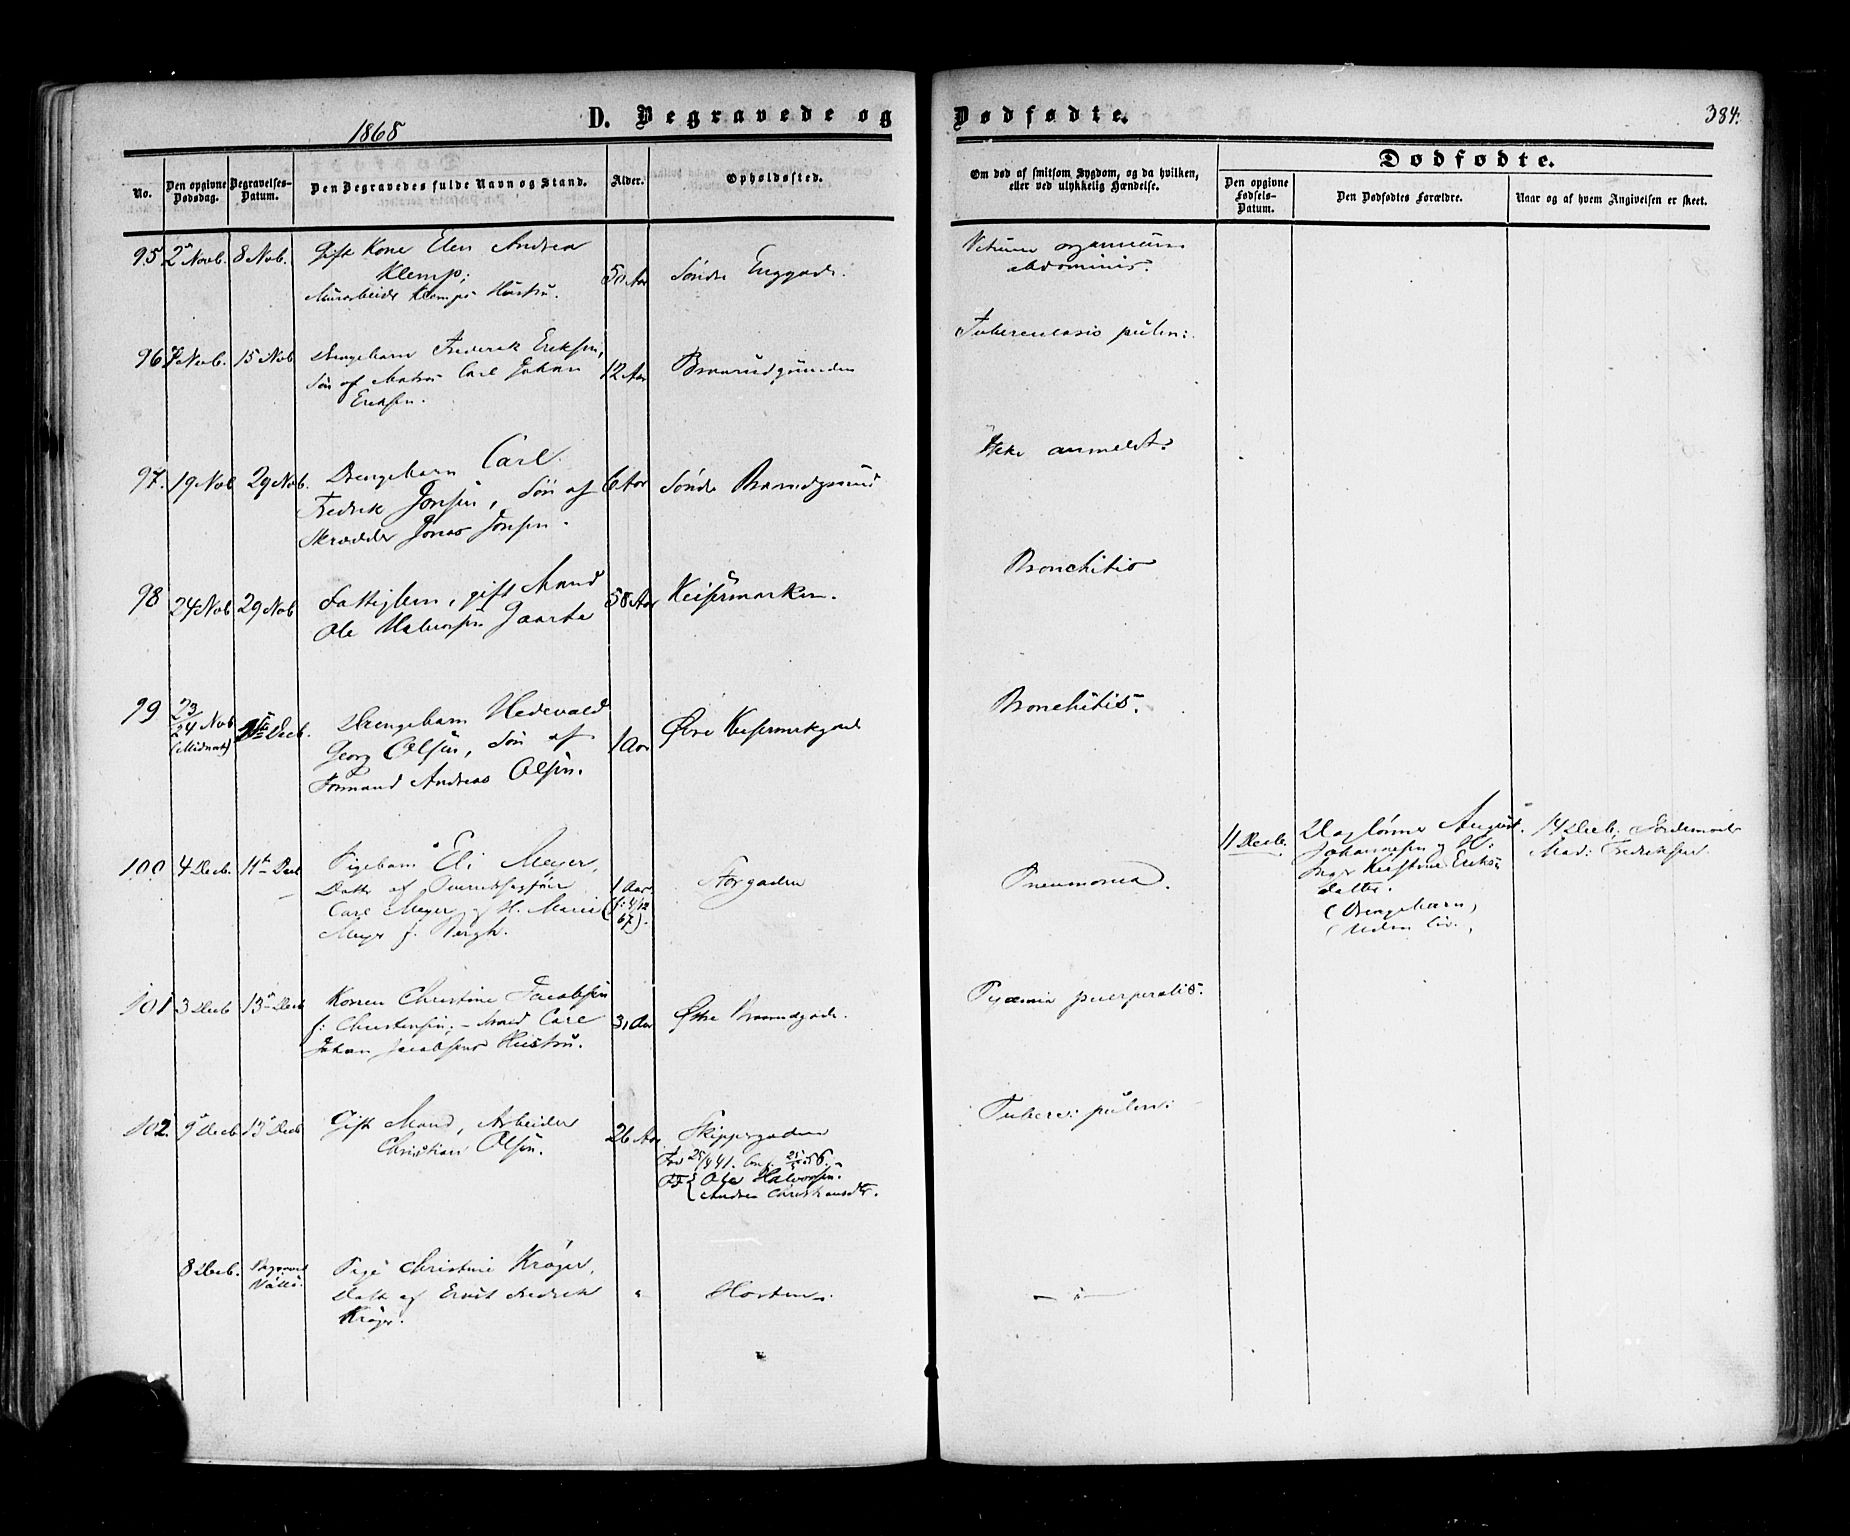 1868
D. Begravede og
Dødfødte.
384.
No.
Den opgivne Dødsdag.
Begravelses-Datum.
Den Begravedes fulde Navn og Stand.
Alder.
Opholdssted.
Om død af smitsom Sygdom, og da hvilken, eller ved ulykkelig Hændelse.
Dødfødte.
Den opgivne Fødsels-Datum.
Den Dødfødtes Forældre.
Naar og af hvem Angivelsen er skeet.
95 2 Novb. 8 Nov.
Gift Kone Elen Andrea
Klemp,
Klemps Hustru.
50 Aar
Søndre Enggade.
abdominis.
96 7 Novb. 15 Nov
Drengebarn Frederik Eriksen,
Søn af Matros Carl Johan
Eriksen.
12 Aar
Braarudgrunden
Tuberculosis pulm:
97. 19 Nov 29 Nov.
Drengebarn Carl
Fredrik Jonsen, Søn af
Skrædder Jonas Jonsen.
6 Aar
Søndre
Ikke anmeldt.
98 24 Nov 29 Nov
Fattiglem, gift Mand
Ole Halvorsen
58 Aar
Keisermarken.
Bronchitis
99 23/24 Nov
(Midnat)
Decb.
Drengebarn Hedevald
Georg Olsen, Søn af
Formand Andreas Olsen.
1 Aar
Øvre Keisermarkgade
Bronchitis.
100 4 Decb. 11te Decb
Pigebarn Eli Meyer,
Datter af
Carl Meyer og H. Marie
Meyer f. Bergh.
1 Aar
(f: 4/12
67).
Storgaden
Pneumonia.
11 Decb.
Daglønner August
Johannesen og
Inger Kirstine Eriks
datter.
(Drengebarn,
Uden Liv.)
14 Decb. Jordemoder
Mad: Fredriksen
101 3 Decb 13 Decb
Konen Christine Jacobsen
f: Christensen, Carl
Johan Jacobsens Hustru.
31 Aar
Østre Braarudgade.
Pyæmia puerperalis.
102. 9 Decb 13 Decb
Gift Mand, Arbeider
Christian Olsen.
26 Aar
Skippergaden
Fød 25/4 41.
FF { Ole Halvorsen
Andrea Christiansdtr.
Tuberc: pulm:
8 Decb.
Pige Christine Krøger,
Datter af Ernst Fredrik
Krøger.
"
Horten
— " —